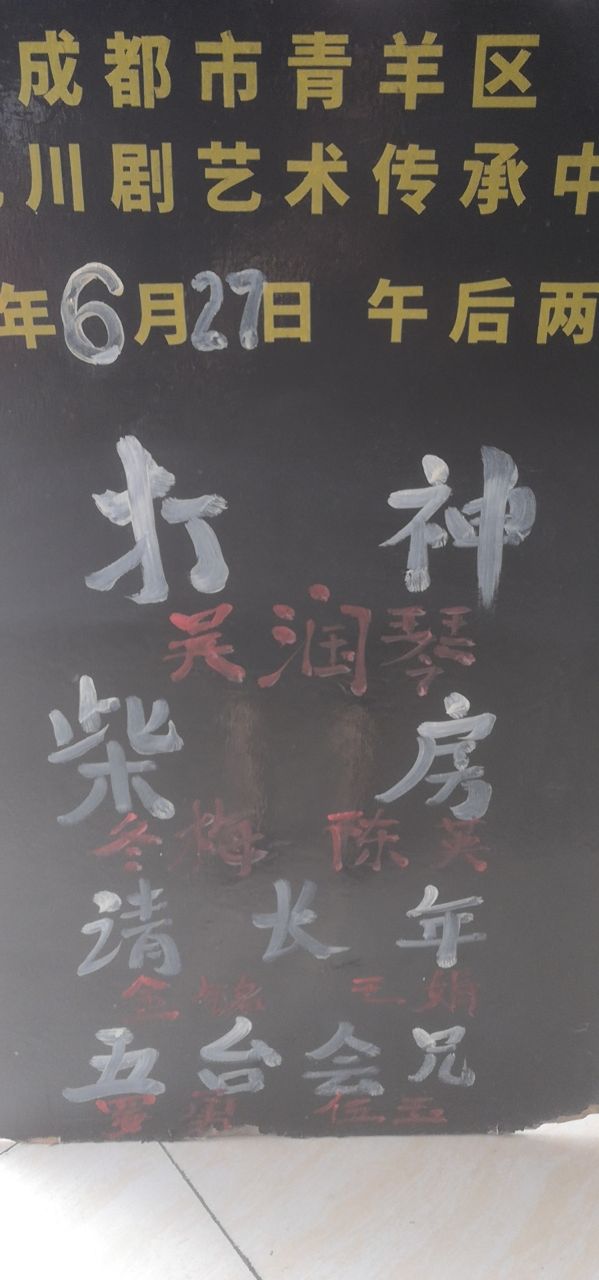 成都市青羊区
川剧艺术传承中
年6月27日 午后两
打神
吴润琴
柴房
冬梅 陈英
请长年
王娟
五台会兄
罗勇 伍玉